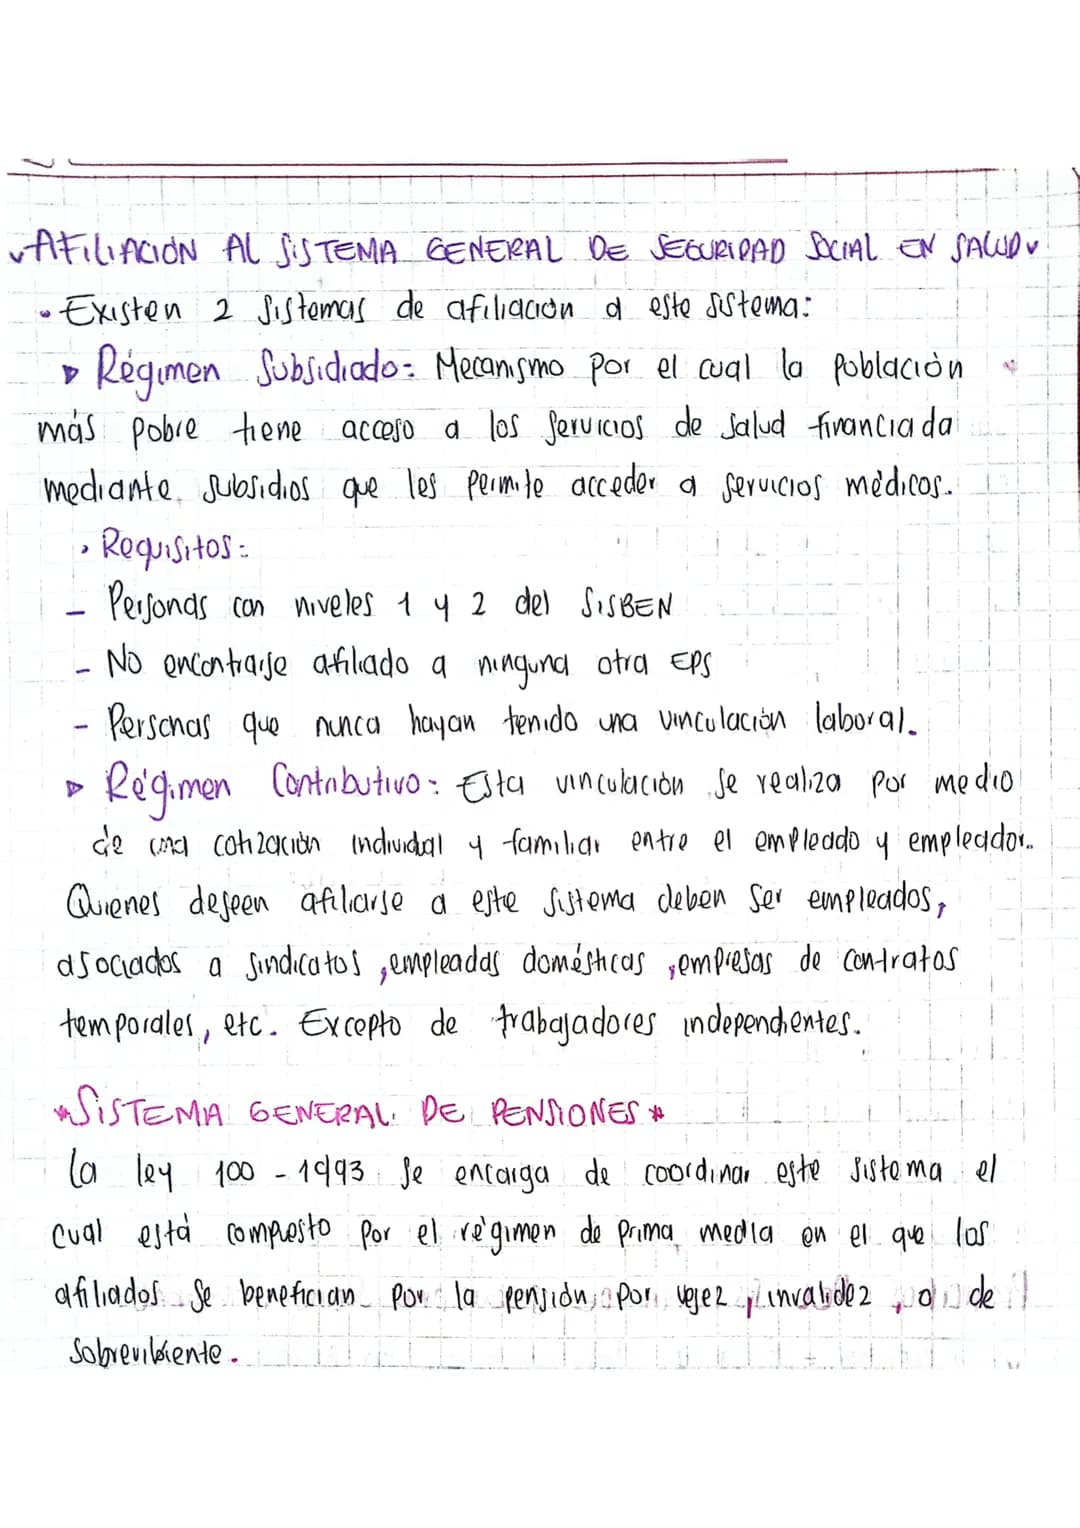 AFILIACIÓN AL SISTEMA GENERAL DE SEGURIDAD SOCIAL EN SALUD
• Existen 2 sistemas de afiliación a este sistema:
▹ Régimen Subsidiado: Mecanismo por el cual la población
más pobre tiene acceso a los servicios de salud financiada
mediante subsidios que les permite acceder a servicios médicos.
› Requisitos:
- Personas con niveles 1 y 2 del SISBEN
- No encontrarse afiliado a ninguna otra EPS
- Personas que nunca hayan tenido una vinculación laboral.
▹ Régimen Contributivo: Esta vinculación se realiza por medio
de una cotización individual y familiar entre el empleado y empleador.
Quienes deseen afiliarse a este sistema deben ser empleados,
asociados a sindicatos, empleadas domésticas, empresas de contratos
temporales, etc. Excepto de trabajadores independientes.
*SISTEMA GENERAL DE PENSIONES*
La ley 100 - 1993 se encarga de coordinar este sistema el
cual está compuesto por el régimen de prima media en el que los
afiliados se benefician por la pensión, por vejez, invalidez, o de
sobrevibiente.